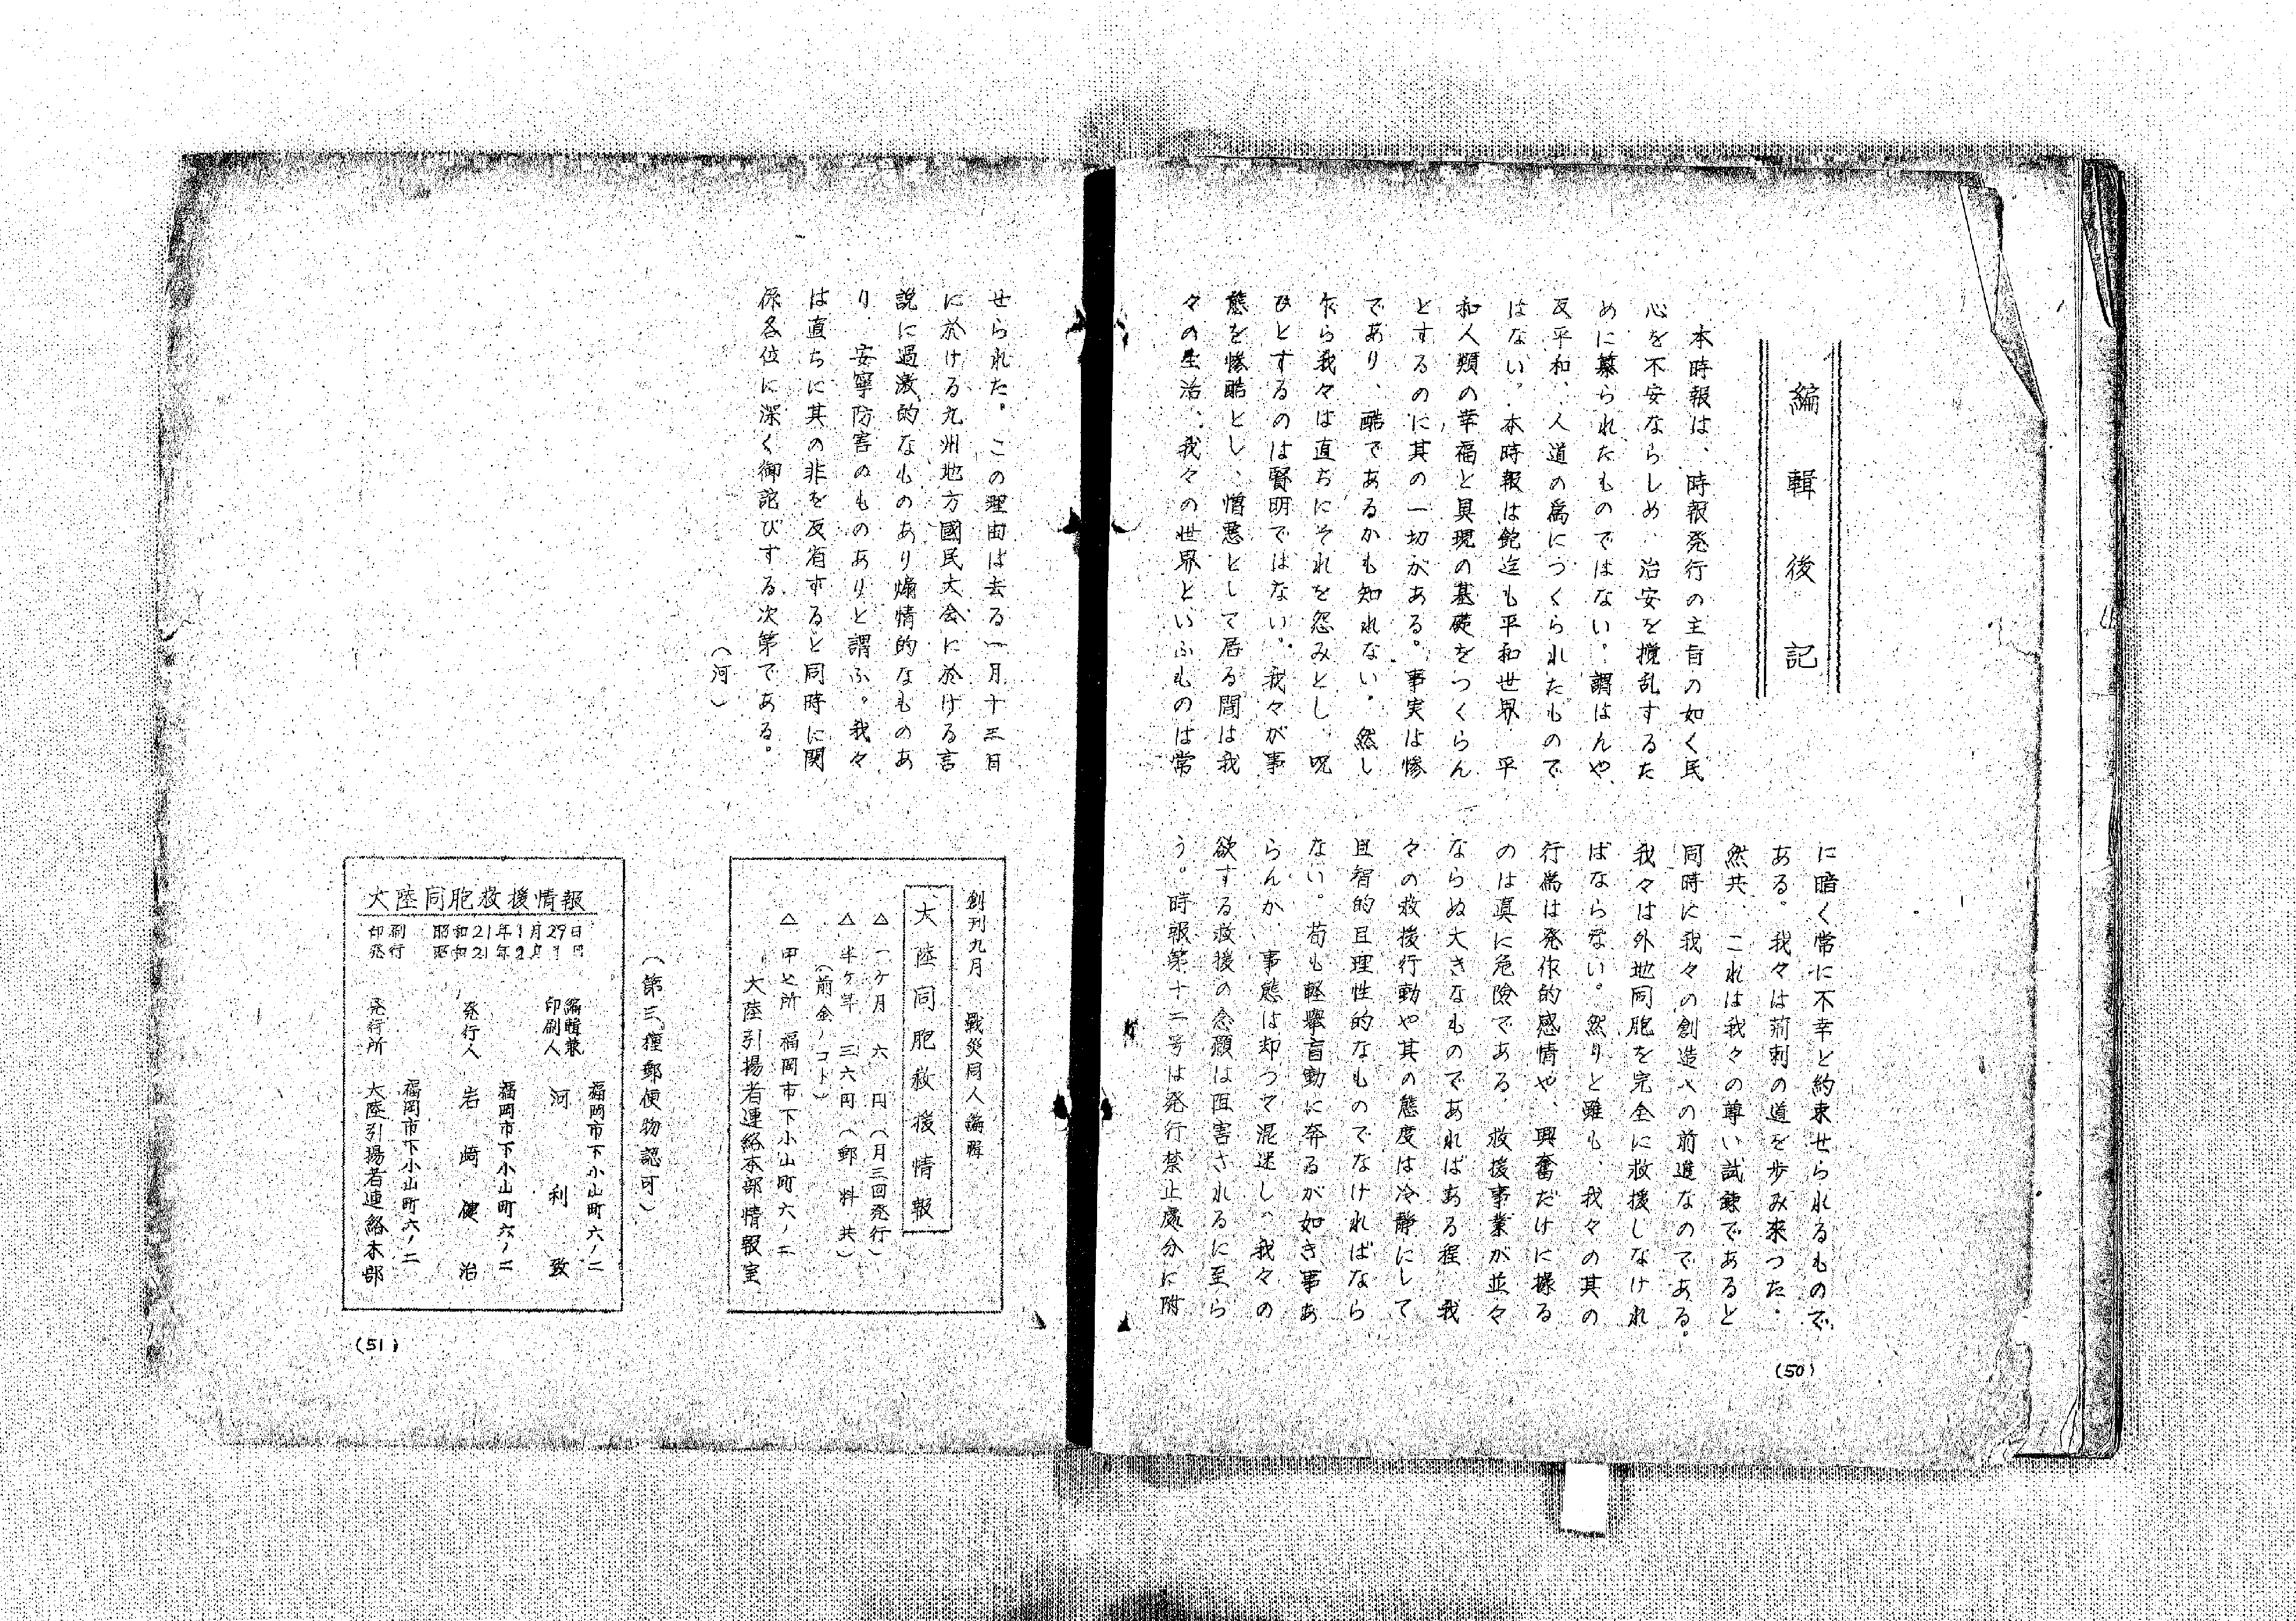 編輯後記
本時報は、時報発行の主旨の如く民
心を不安ならしめ、治安を攪乱するた
めに纂られたものではない。謂はんや、
反平和、人道の為につくられたもので
はない。本時報は飽迄も平和世界、平
和人類の幸福と具現の基礎をつくらん
とするのに其の一切がある。事実は惨
であり、酷であるかも知れない。然し
乍ら我々は直ちにそれを怨みとし、呪
ひとするのは賢明ではない。我々が事
態を惨酷とし、憎悪として居る間は我
々の生活、我々の世界といふものは常
に暗く常に不幸と約束せられるもので
ある。我々は荊刺の道を歩み来つた。
然共、これは我々の尊い試錬であると
同時に我々の創造への前進なのである。
我々は外地同胞を完全に救援しなけれ
ばならない。然りと雖も、我々の其の
行為は発作的感情や、興奮だけに據る
のは真に危険である。救援事業が並々
ならぬ大きなものであればある程、我
々の救援行動や其の態度は冷静にして
且智的且理性的なものでなければなら
ない。苟も軽挙盲動に奔るが如き事あ
らんか、事態は却つて混迷し、我々の
欲する救援の念願は阻害されるに至ら
う。時報第十二号は発行禁止處分に附
(50)
せられた。この理由は去る一月十三日
に於ける九州地方國民大会に於ける言
説に過激的なものあり煽情的なものあ
り、安寧防害のものありと謂ふ。我々
は直ちに其の非を反省すると同時に関
係各位に深く御詫びする次第である。
(河)
創刊九月 戰災同人編輯
大陸同胞救援情報
△ 一ケ月 六円(月三回発行)
△ 半ケ年 三六円(郵料共)
(前金ノコト)
△ 申込所 福岡市下小山町六ノ二
大陸引揚者連絡本部情報室
(第三種郵便物認可)
大陸同胞救援情報
印刷 昭和21年1月29日
発行 昭和21年2月1日
編輯兼
印刷人
福岡市下小山町六ノ二
河利致
発行人
福岡市下小山町六ノ二
岩崎健治
発行所
福岡市下小山町六ノ二
大陸引揚者連絡本部
(51)